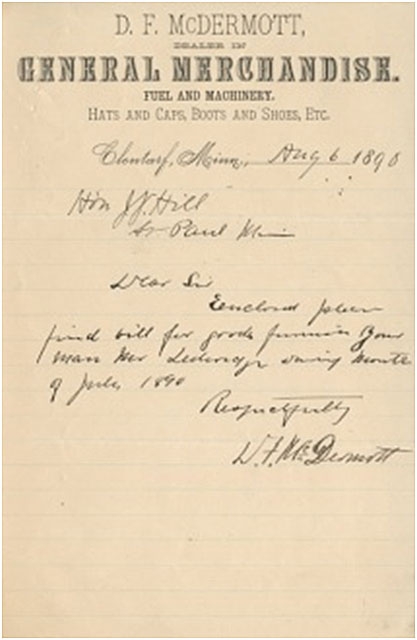 D. F. McDERMOTT,
DEALER IN
GENERAL MERCHANDISE.
FUEL AND MACHINERY.
HATS AND CAPS, BOOTS AND SHOES, ETC.
Clontarf, Minn., Aug 6 1890
Hon J. J. Hill
St Paul Min
Dear Sir
Enclosed please
find bill for goods furnish your
man Mr during month
of July 1890
Respectfully
D. F. McDermott